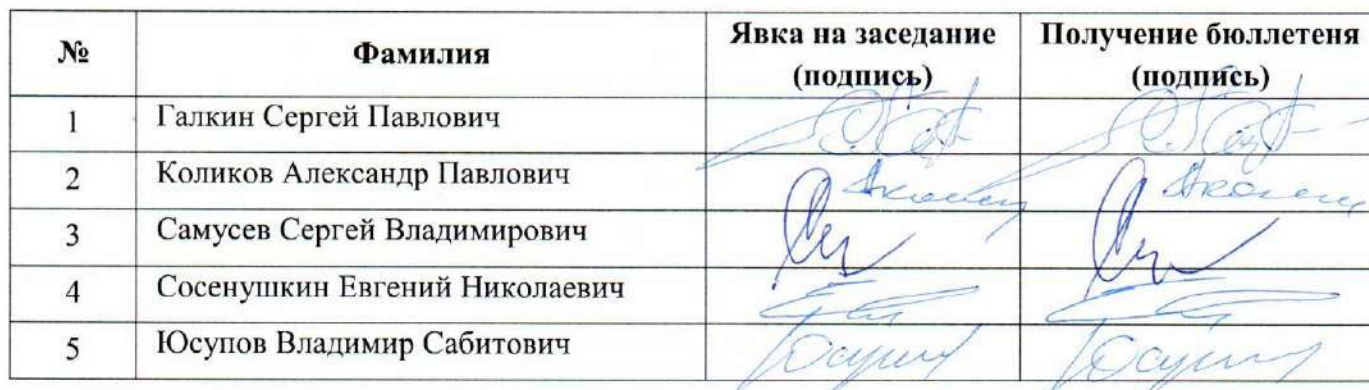 № Фамилия Явка на заседание (подпись) Получение бюллетеня (подпись)
1 Галкин Сергей Павлович
2 Коликов Александр Павлович
3 Самусев Сергей Владимирович
4 Сосенушкин Евгений Николаевич
5 Юсупов Владимир Сабитович